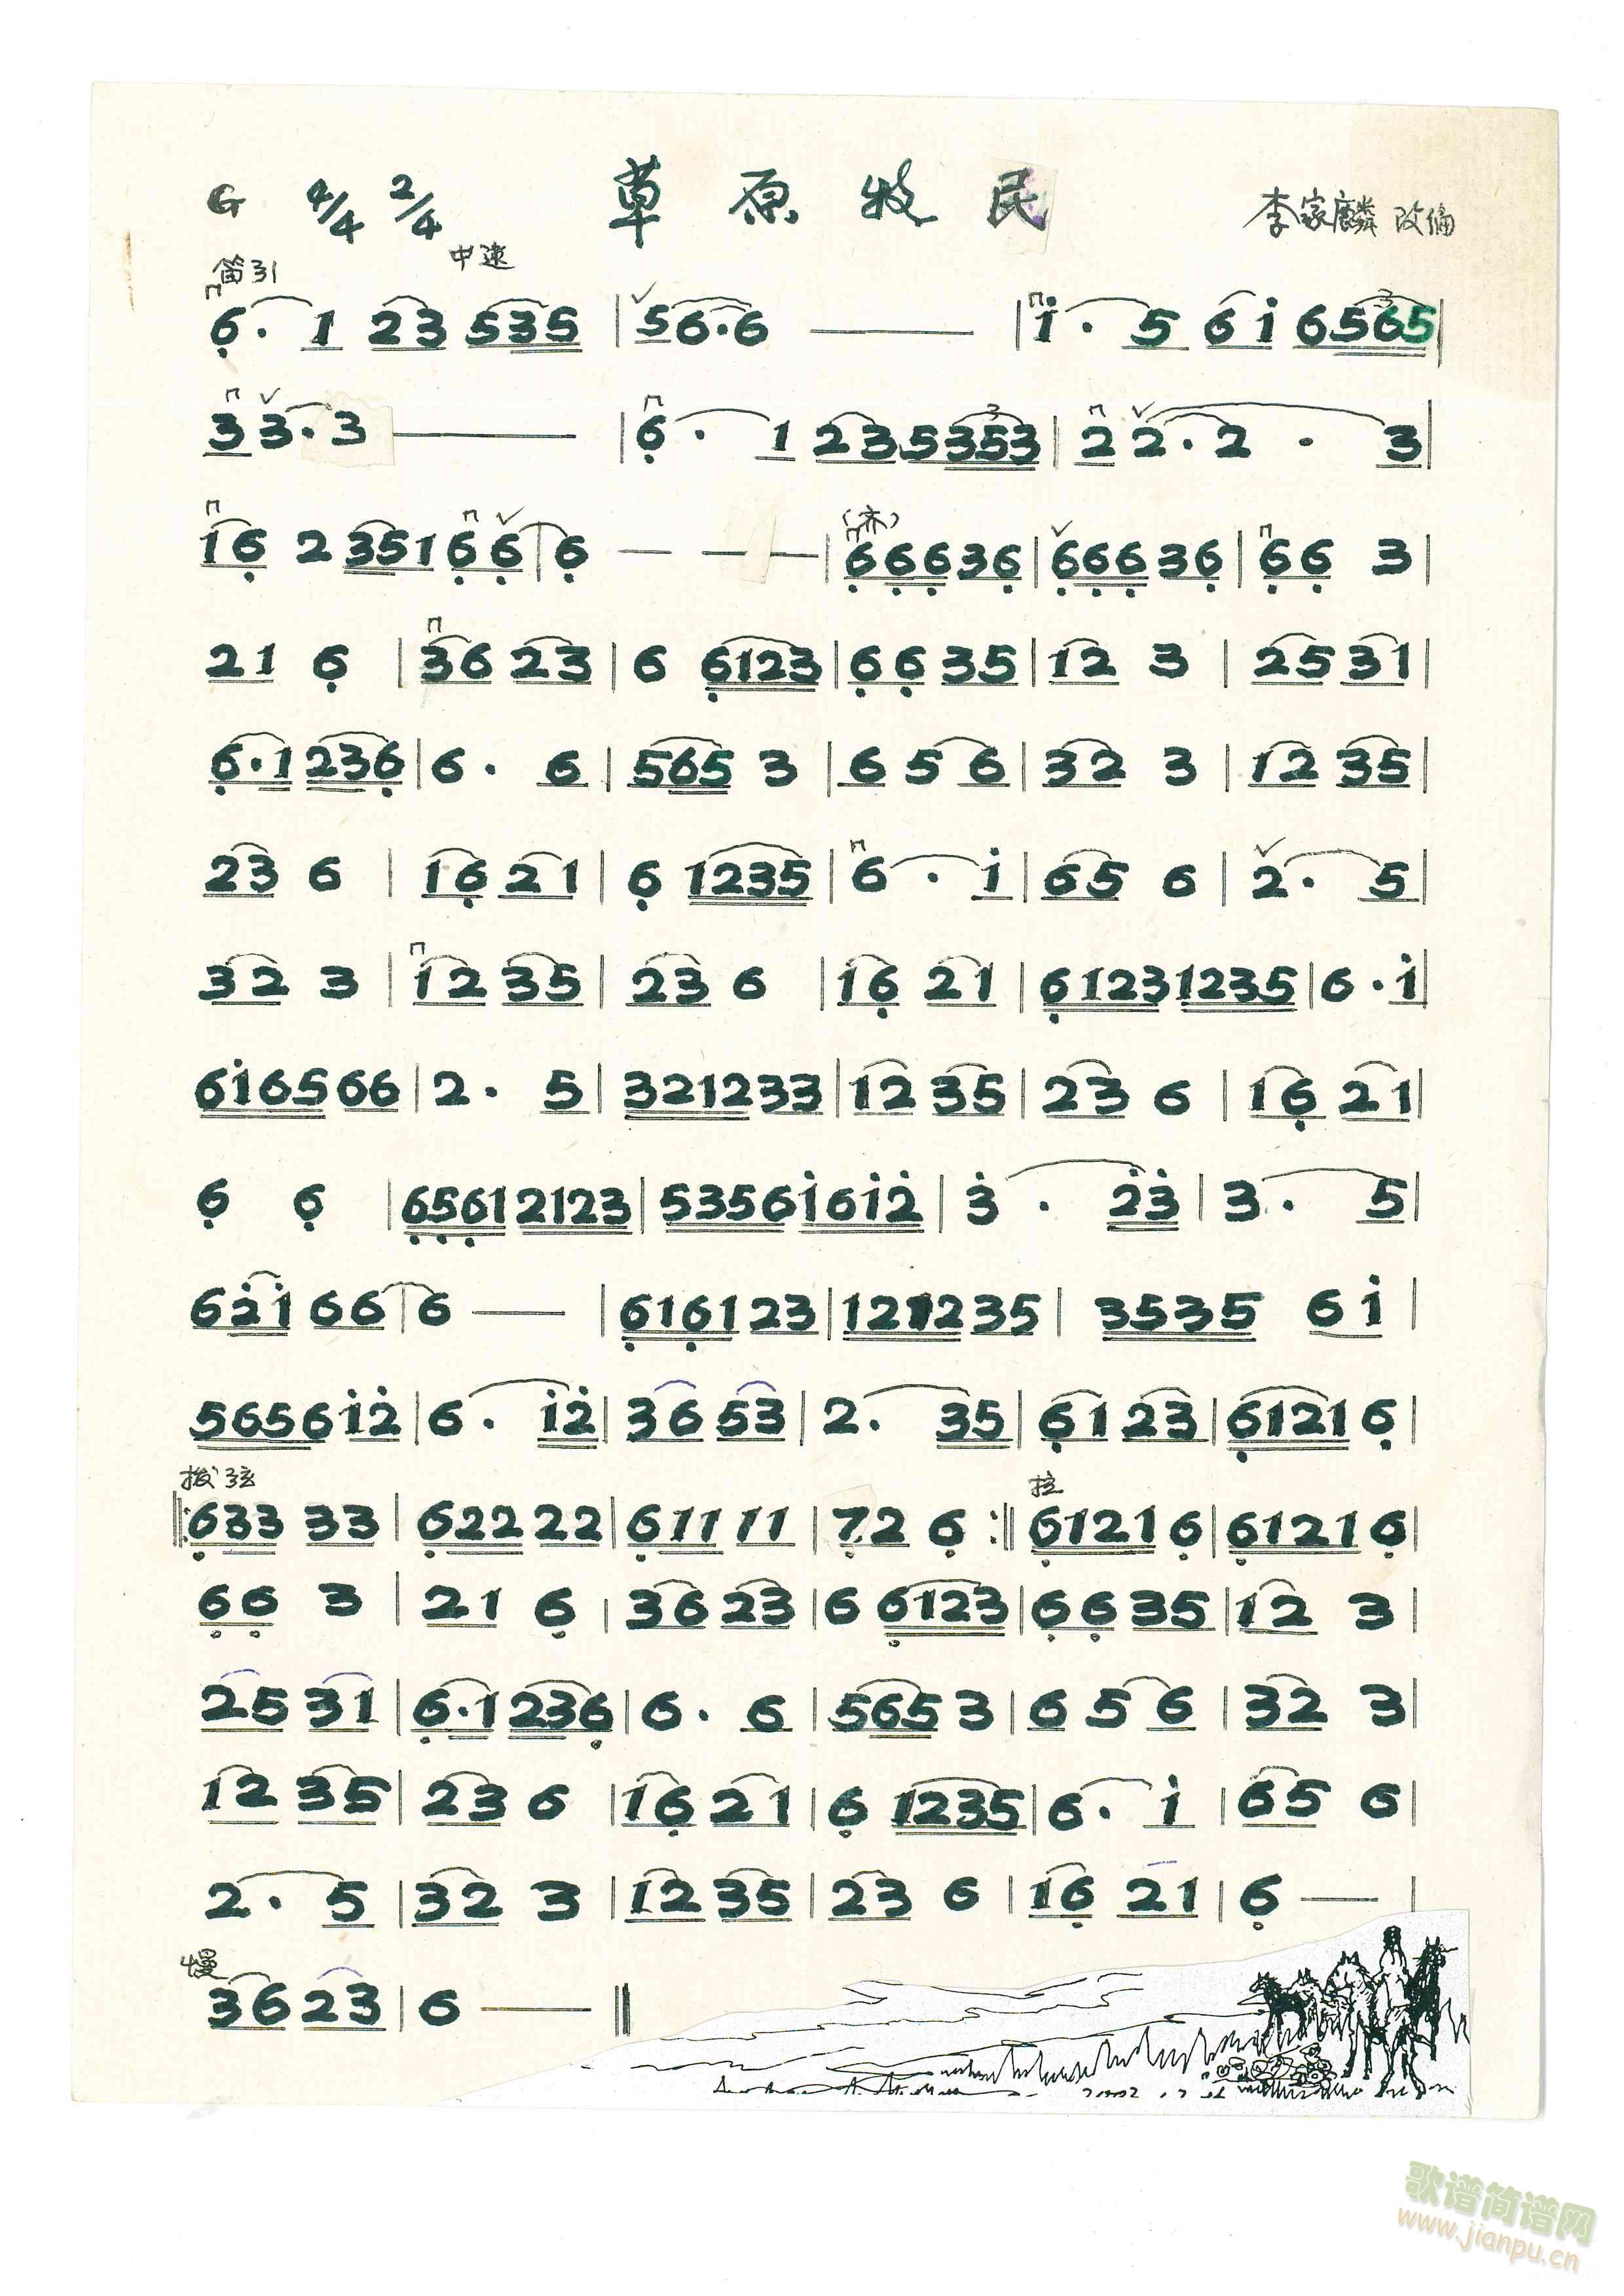 G 4/4 2/4 草原牧民 李家麟 改编
中速
笛引
6· 1 23 535 | 56·6 — | i· 5 6i 6565 |
3 3·3 — | 6· 1 23 5353 | 2 2·2 · 3 |
16 2 351 66 | 6 — — — | (齐) 666 36 | 666 36 | 66 3 |
21 6 | 36 23 | 6 6123 | 66 35 | 12 3 | 25 31 |
6·1 236 | 6· 6 | 565 3 | 6 5 6 | 32 3 | 12 35 |
23 6 | 16 21 | 6 1235 | 6· i | 65 6 | 2· 5 |
32 3 | 12 35 | 23 6 | 16 21 | 6123 1235 | 6·i |
6i65 66 | 2· 5 | 3212 33 | 12 35 | 23 6 | 16 21 |
6 6 | 6561 2123 | 5356 i6i2 | 3· 23 | 3· 5 |
62i 66 | 6 — | 6161 23 | 1212 35 | 3535 6i |
5656 i2 | 6· i2 | 36 53 | 2· 35 | 61 23 | 6121 6 |
拨弦 拉
‖: 633 33 | 622 22 | 611 11 | 72 6 :‖ 6121 6 | 6121 6 |
66 3 | 21 6 | 36 23 | 6 6123 | 66 35 | 12 3 |
25 31 | 6·1 236 | 6· 6 | 565 3 | 6 5 6 | 32 3 |
12 35 | 23 6 | 16 21 | 6 1235 | 6· i | 65 6 |
2· 5 | 32 3 | 12 35 | 23 6 | 16 21 | 6 — |
慢
36 23 | 6 — ‖
歌谱简谱网
www.jianpu.cn